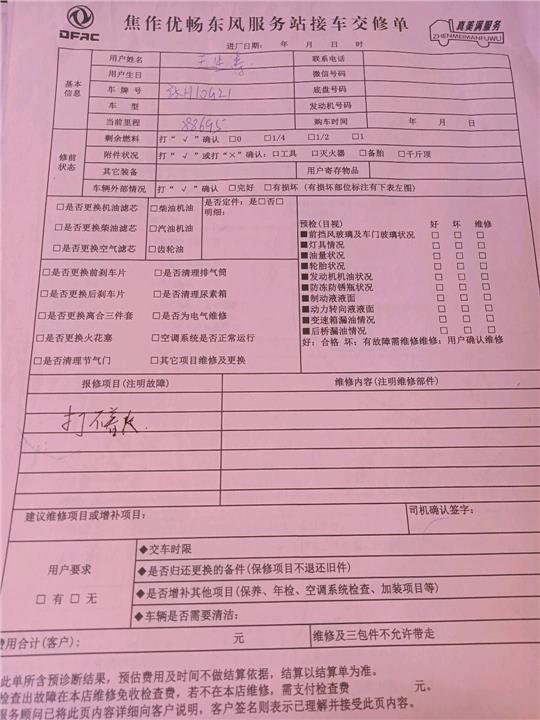 DFAC
焦作优畅东风服务站接车交修单
真美满服务
ZHENMEIMANFUWU
进厂日期: 年 月 日 时
基本信息
用户姓名 联系电话
用户生日 微信号码
车牌号 底盘号码
车 型 发动机号码
当前里程 88695 购车时间 年 月 日
修前状态
剩余燃料 打“√”确认 □0 □1/4 □1/2 □1
附件状况 打“√”或打“×”确认: □工具 □灭火器 □备胎 □千斤顶
其它装备 用户寄存物品
车辆外部情况 打“√”确认 □完好 □有损坏 (有损坏部位标注有下表左图)
□是否更换机油滤芯 □柴油机油 是否定件: 是□否□
□是否更换柴油滤芯 □汽油机油 明细:
□是否更换空气滤芯 □齿轮油
□是否更换前刹车片 □是否清理排气筒
□是否更换后刹车片 □是否清理尿素箱
□是否更换离合三件套 □是否为电气维修
□是否更换火花塞 □空调系统是否正常运行
□是否清理节气门 □其它项目维修及更换
预检(目视) 好 坏 维修
■前挡风玻璃及车门玻璃状况 □ □ □
■灯具情况 □ □ □
■油量状况 □ □ □
■轮胎状况 □ □ □
■发动机机油状况 □ □ □
■防冻防锈瓶状况 □ □ □
■制动液液面 □ □ □
■动力转向液液面 □ □ □
■变速箱漏油情况 □ □ □
■后桥漏油情况 □ □ □
好: 合格 坏: 有故障需维修维修: 用户确认维修
报修项目(注明故障) 维修内容(注明维修部件)
打不着火.
建议维修项目或增补项目: 司机确认签字:
用户要求
□有□无
◆交车时限
◆是否归还更换的备件(保修项目不退还旧件)
◆是否增补其他项目(保养、年检、空调系统检查、加装项目等)
◆车辆是否需要清洁:
费用合计(客户): 元 维修及三包件不允许带走
此单所含预诊断结果, 预估费用及时间不做结算依据, 结算以结算单为准。
检查出故障在本店维修免收检查费, 若不在本店维修, 需支付检查费 元。
服务顾问已将此页内容详细向客户说明, 客户签名则表示已理解并接受此页内容。